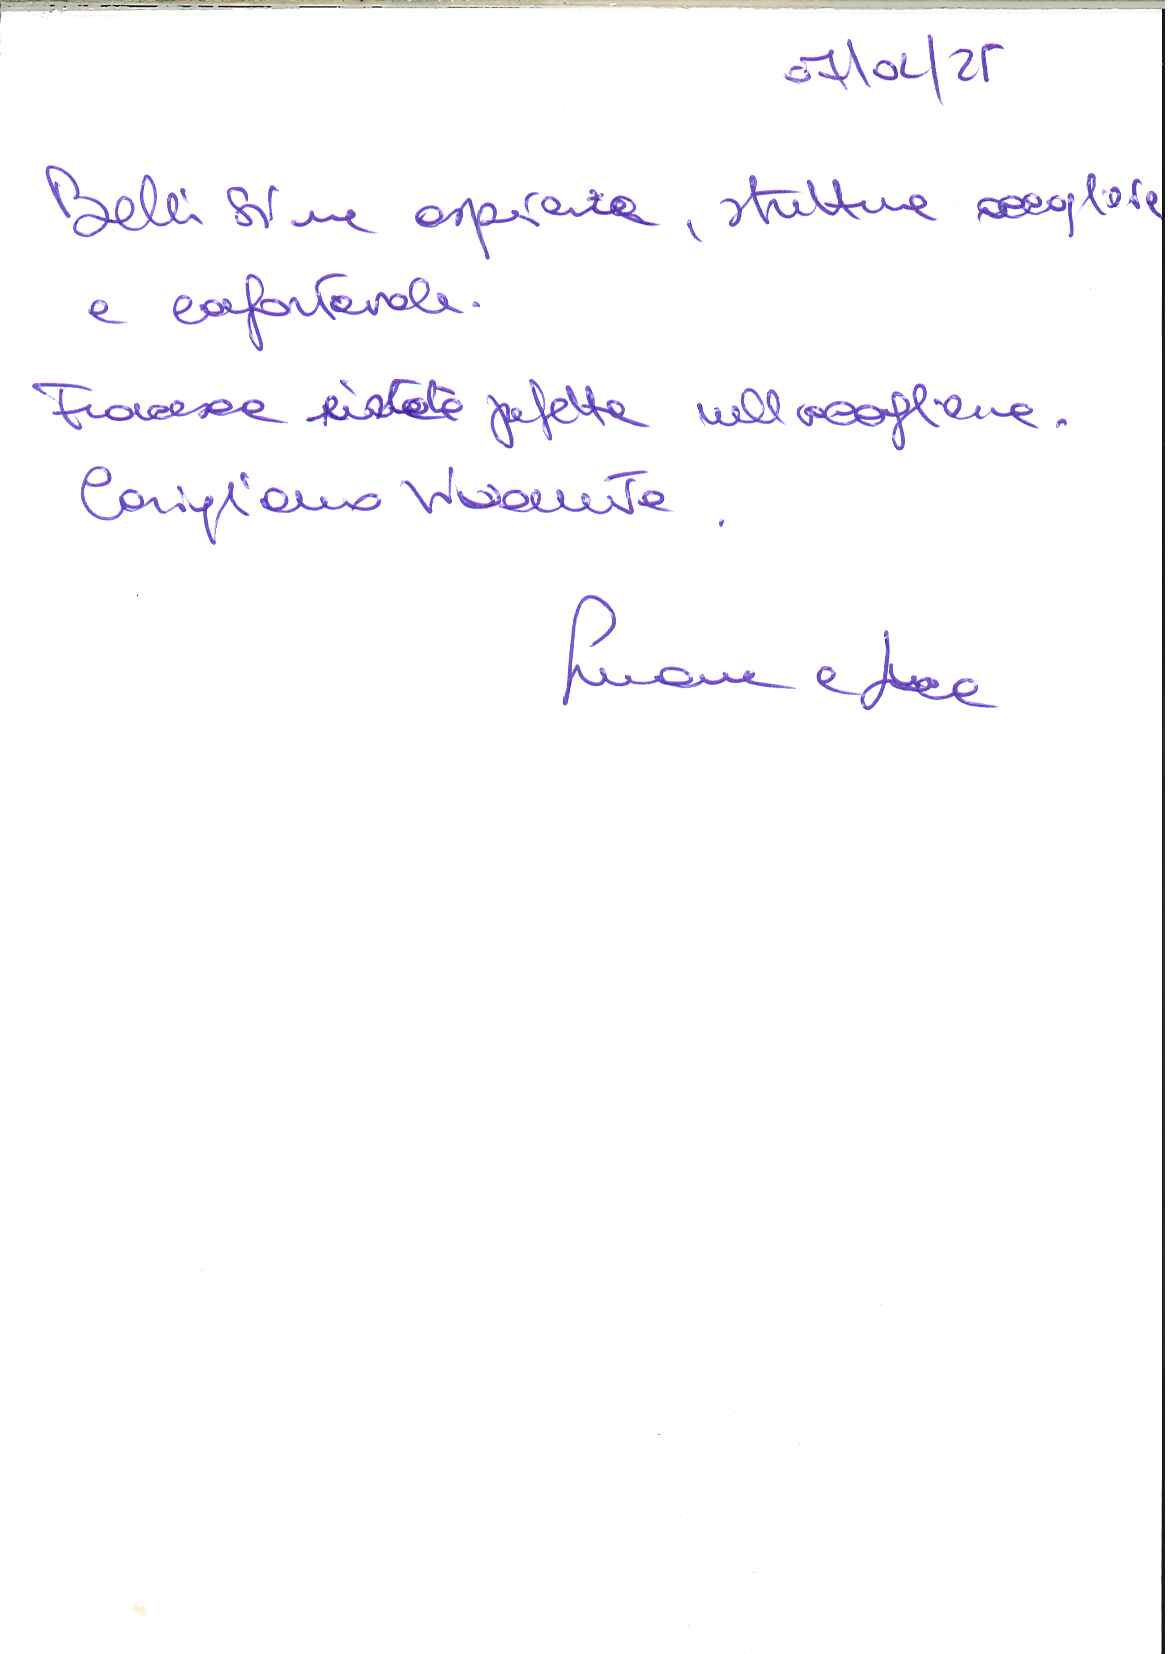 07/04/25
Bellissima esperienza, struttura accogliente
e confortevole.
Francesca è stata perfetta nell'accoglienza.
Consigliamo vivamente.
e Luca